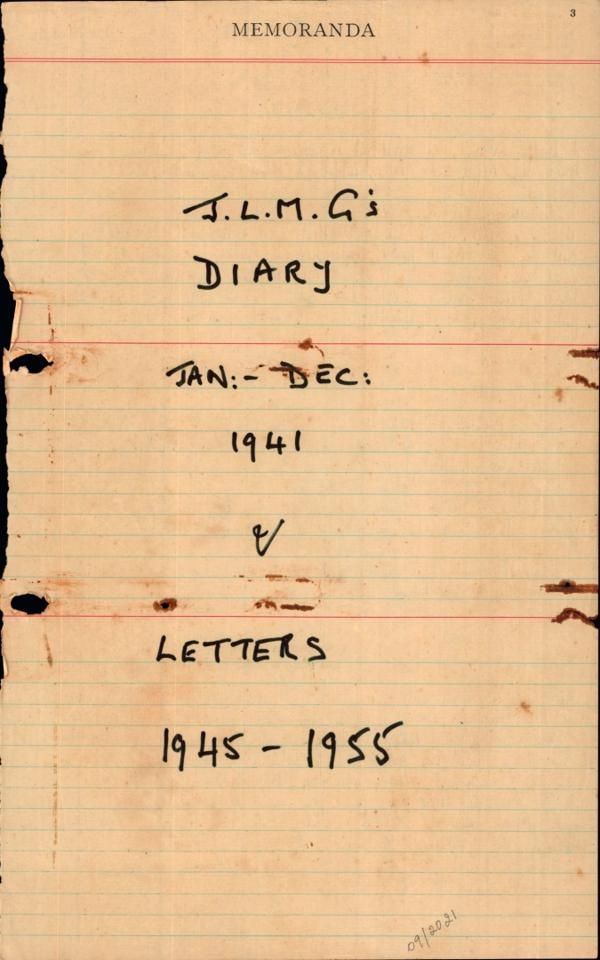 3
MEMORANDA
J.L.M.G's
DIARY
JAN:- DEC:
1941
&
LETTERS
1945 - 1955
09/2021